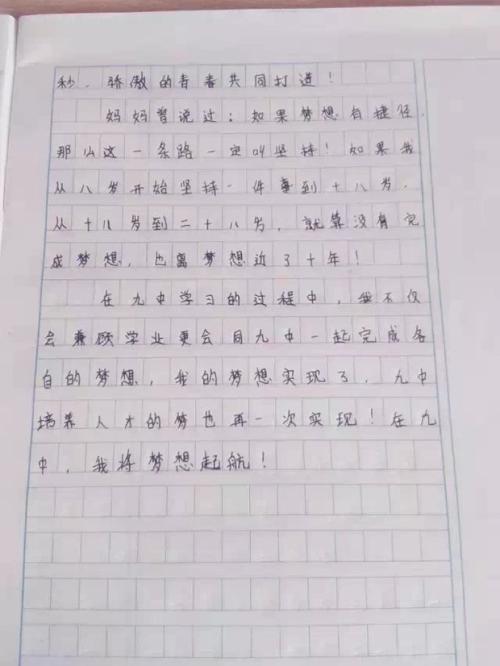 秒、骄傲的青春共同打造！
妈妈曾说过：如果梦想有捷径，
那么这一条路一定叫坚持！如果我
从八岁开始坚持一件事到十八岁，
从十八岁到二十八岁，就算没有完
成梦想，也离梦想近了十年！
在九中学习的过程中，我不仅
会兼顾学业更会同九中一起完成各
自的梦想，我的梦想实现了，九中
培养人才的梦也再一次实现！在九
中，我将梦想起航！